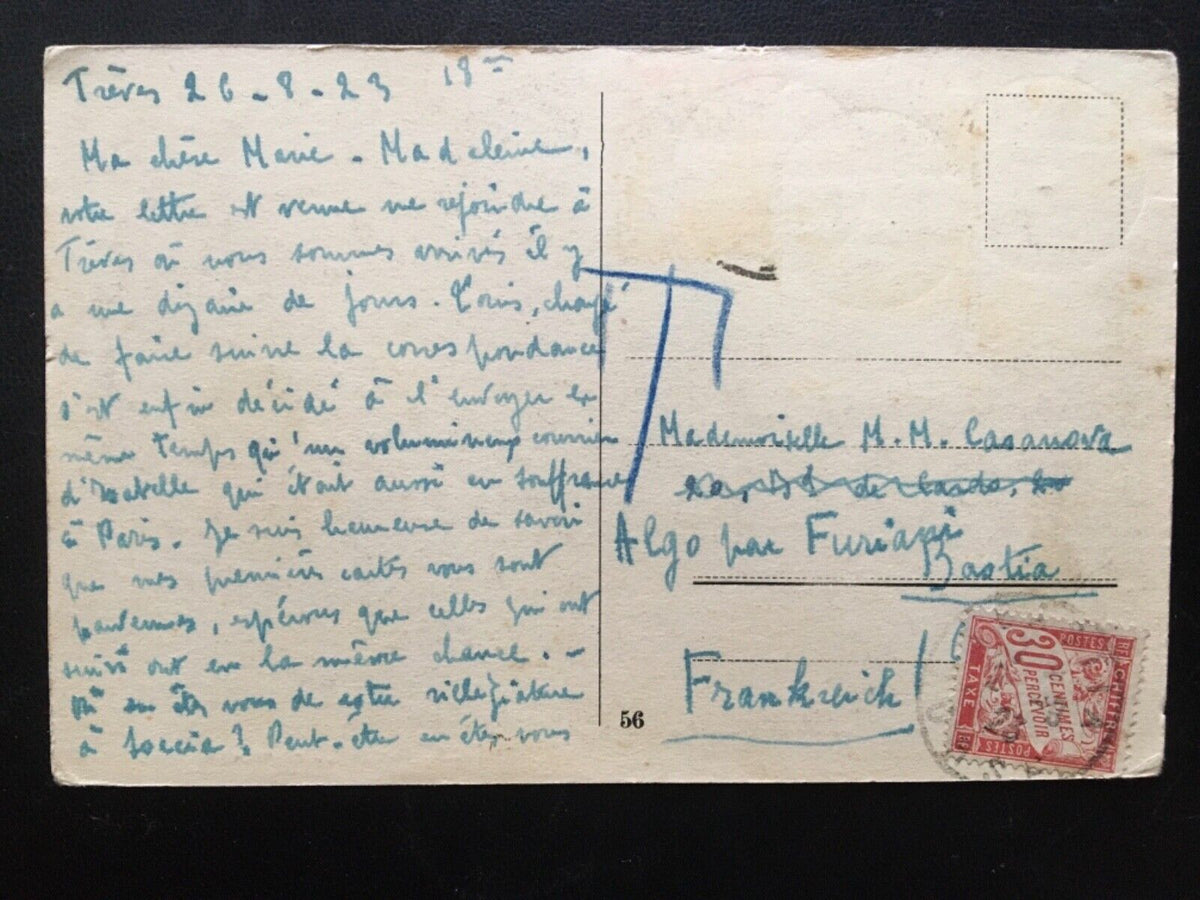 Trèves 26-8-23 18
Ma chère Marie-Madeleine,
votre lettre est venue me rejoindre à
Trèves où nous sommes arrivés il y
a une dizaine de jours. Louis, chargé
de faire suivre la correspondance
s'est enfin décidé à l'envoyer en
même temps qu'un volumineux courrier
d'Isabelle qui était aussi en souffrance
à Paris. Je suis heureuse de savoir
que mes premières cartes vous sont
parvenues, espérons que celles qui ont
suivi ont eu la même chance. -
Où en êtes vous de votre villégiature
à Soccia? Peut-être en êtes vous
T
Mademoiselle M. M. Casanova
de Cardo
Algo par Furiani
Bastia
Frankreich
56
CHIFFRE
POSTES
30
CENTIMES
A PERCEVOIR
TAXE
POSTES